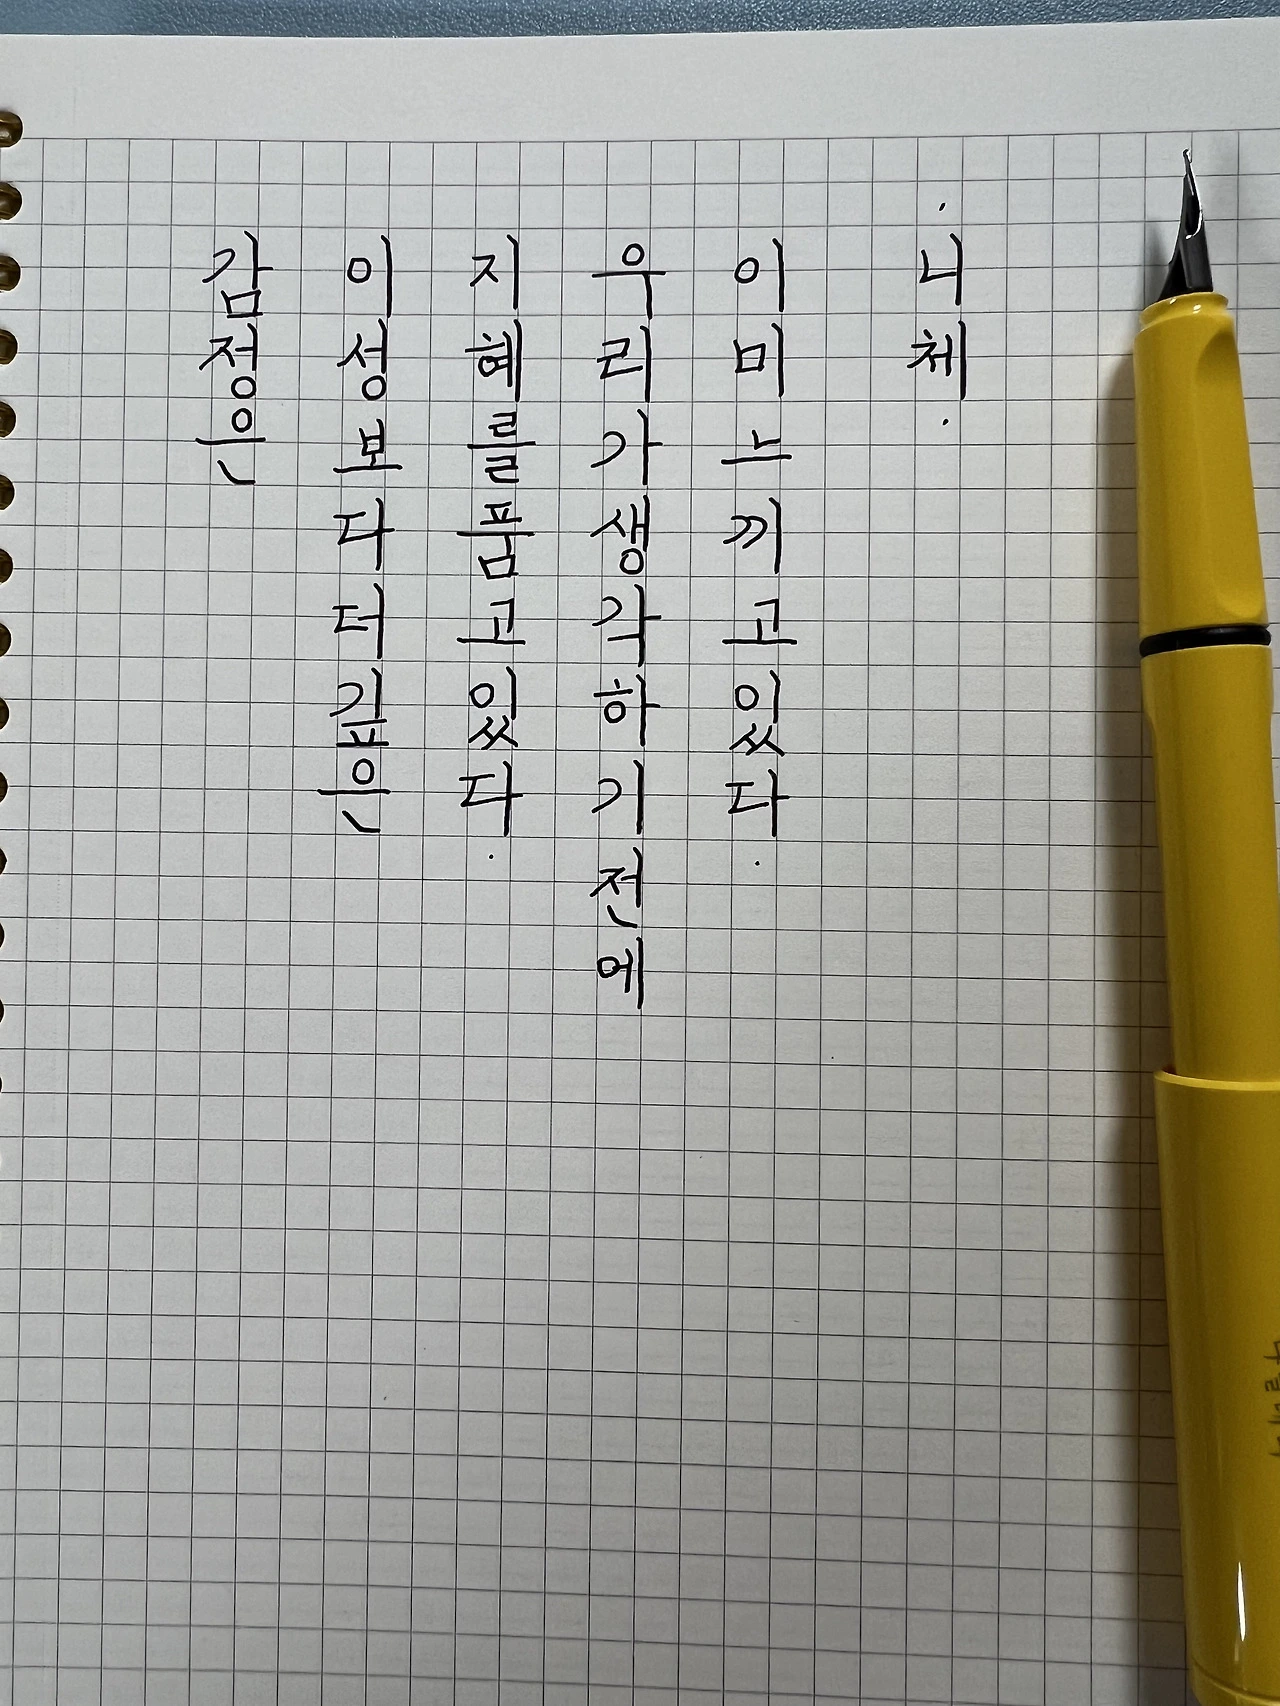 감정은
이성보다더깊은
지혜를품고있다.
우리가생각하기전에
이미느끼고있다.
·니체·